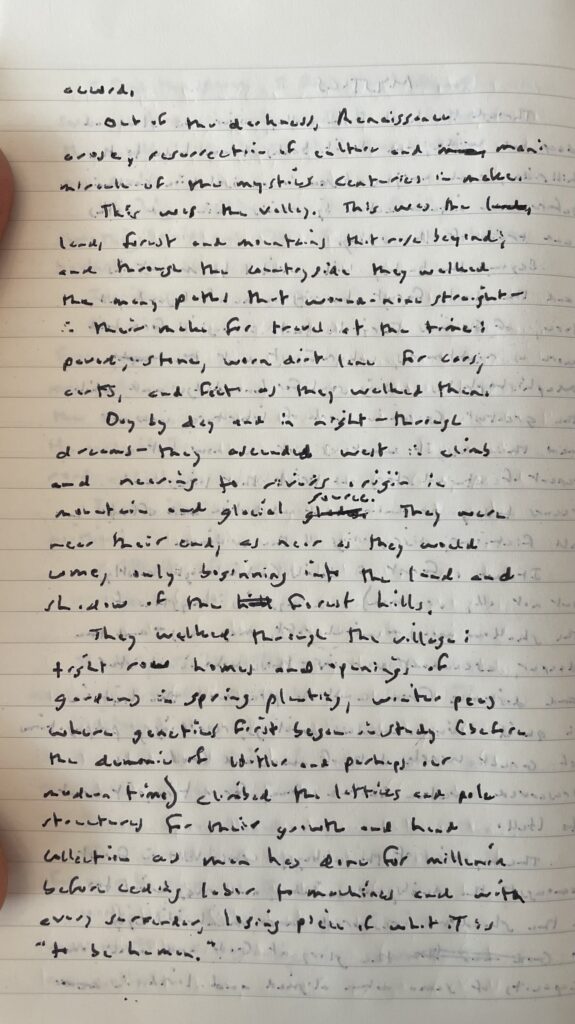 accord.
Out of the darkness, Renaissance
arose, resurrection of culture and man:
miracle of the mystics centuries in make.
This was the valley. This was the
land, forest and mountains that rose beyond;
and through the countryside they walked
the many paths that straight—
in their make for travel at the time:
paved, stone, worn dirt lane for cars,
carts, and feet as they walked them.
Day by day and in night—through
dreams—they ascended west in climb
and nearing to rivers origin in
mountain and glacial source. They were
near their end, as near as they would
come, only beginning into the land and
shadow of the forest hills.
They walked through the village:
tight row homes and openings of
gardens in spring planting, winter peas
where genetics first began in study (before
the demonic of Hitler and perhaps our
modern time) climbed the lattices and pole
structures for their growth and hand
collection as man has done for millenia
before ceding labor to machines and with
every surrender, losing piece of what it is
"to be human."